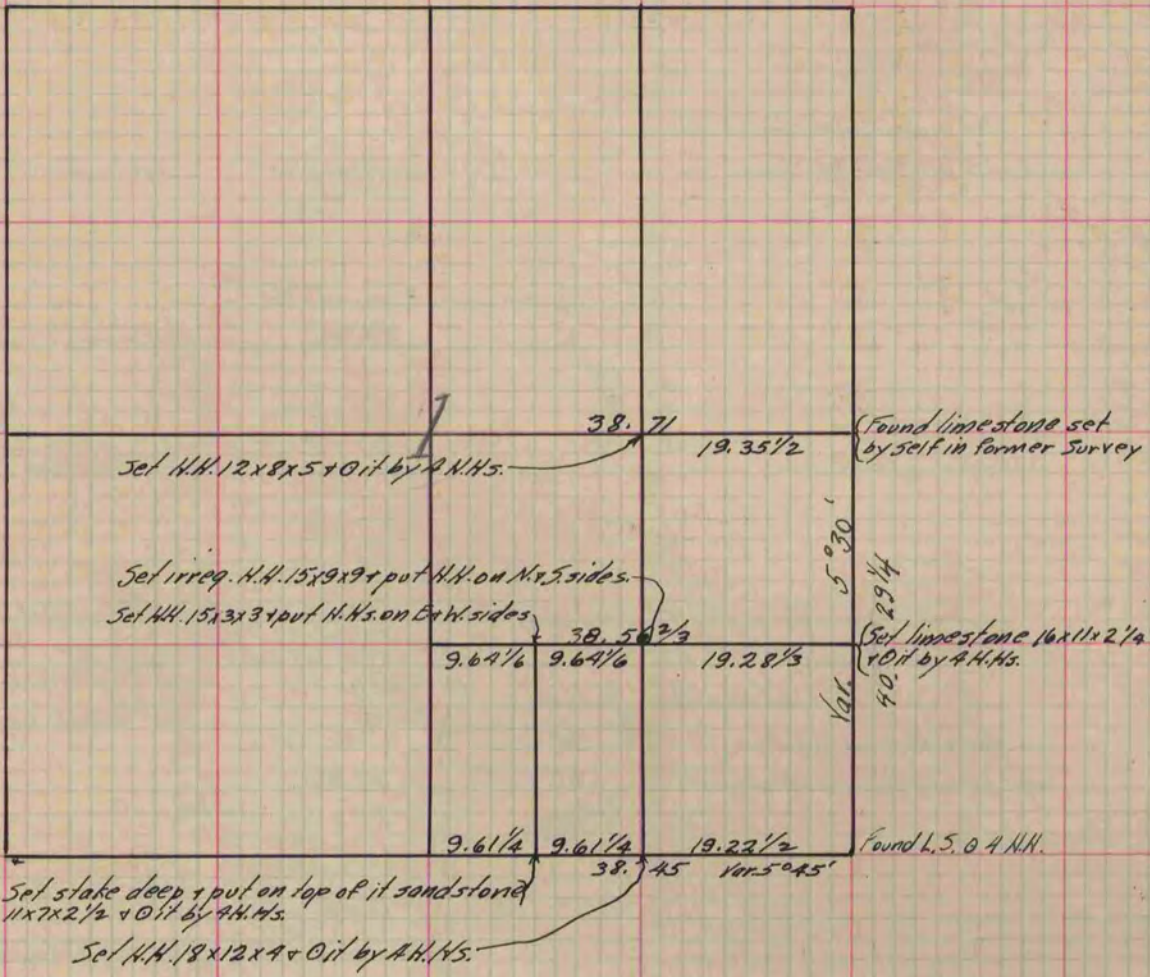 38. 71
19.35 1/2
Found limestone set
by self in former Survey
1
Set N.H. 12x8x5 + ⊙ it by 4 N.Hs.
Var. 5° 30'
40. 29 1/4
Set irreg. N.H. 15x9x9 + put N.H. on N. + S. sides.
Set N.H. 15x3x3 + put N.Hs. on E + W. sides
38. 56 2/3
9.64 1/6
9.64 1/6
19.28 1/3
Set limestone 16x11x2 1/4
+ ⊙ it by 4 N.Hs.
9.61 1/4
9.61 1/4
19.22 1/2
Found L.S. ⊙ 4 N.H.
38. 45
Var. 5° 45'
Set stake deep + put on top of it sandstone
11x7x2 1/2 + ⊙ it by 4 N.Hs.
Set N.H. 18x12x4 + ⊙ it by 4 N.Hs.